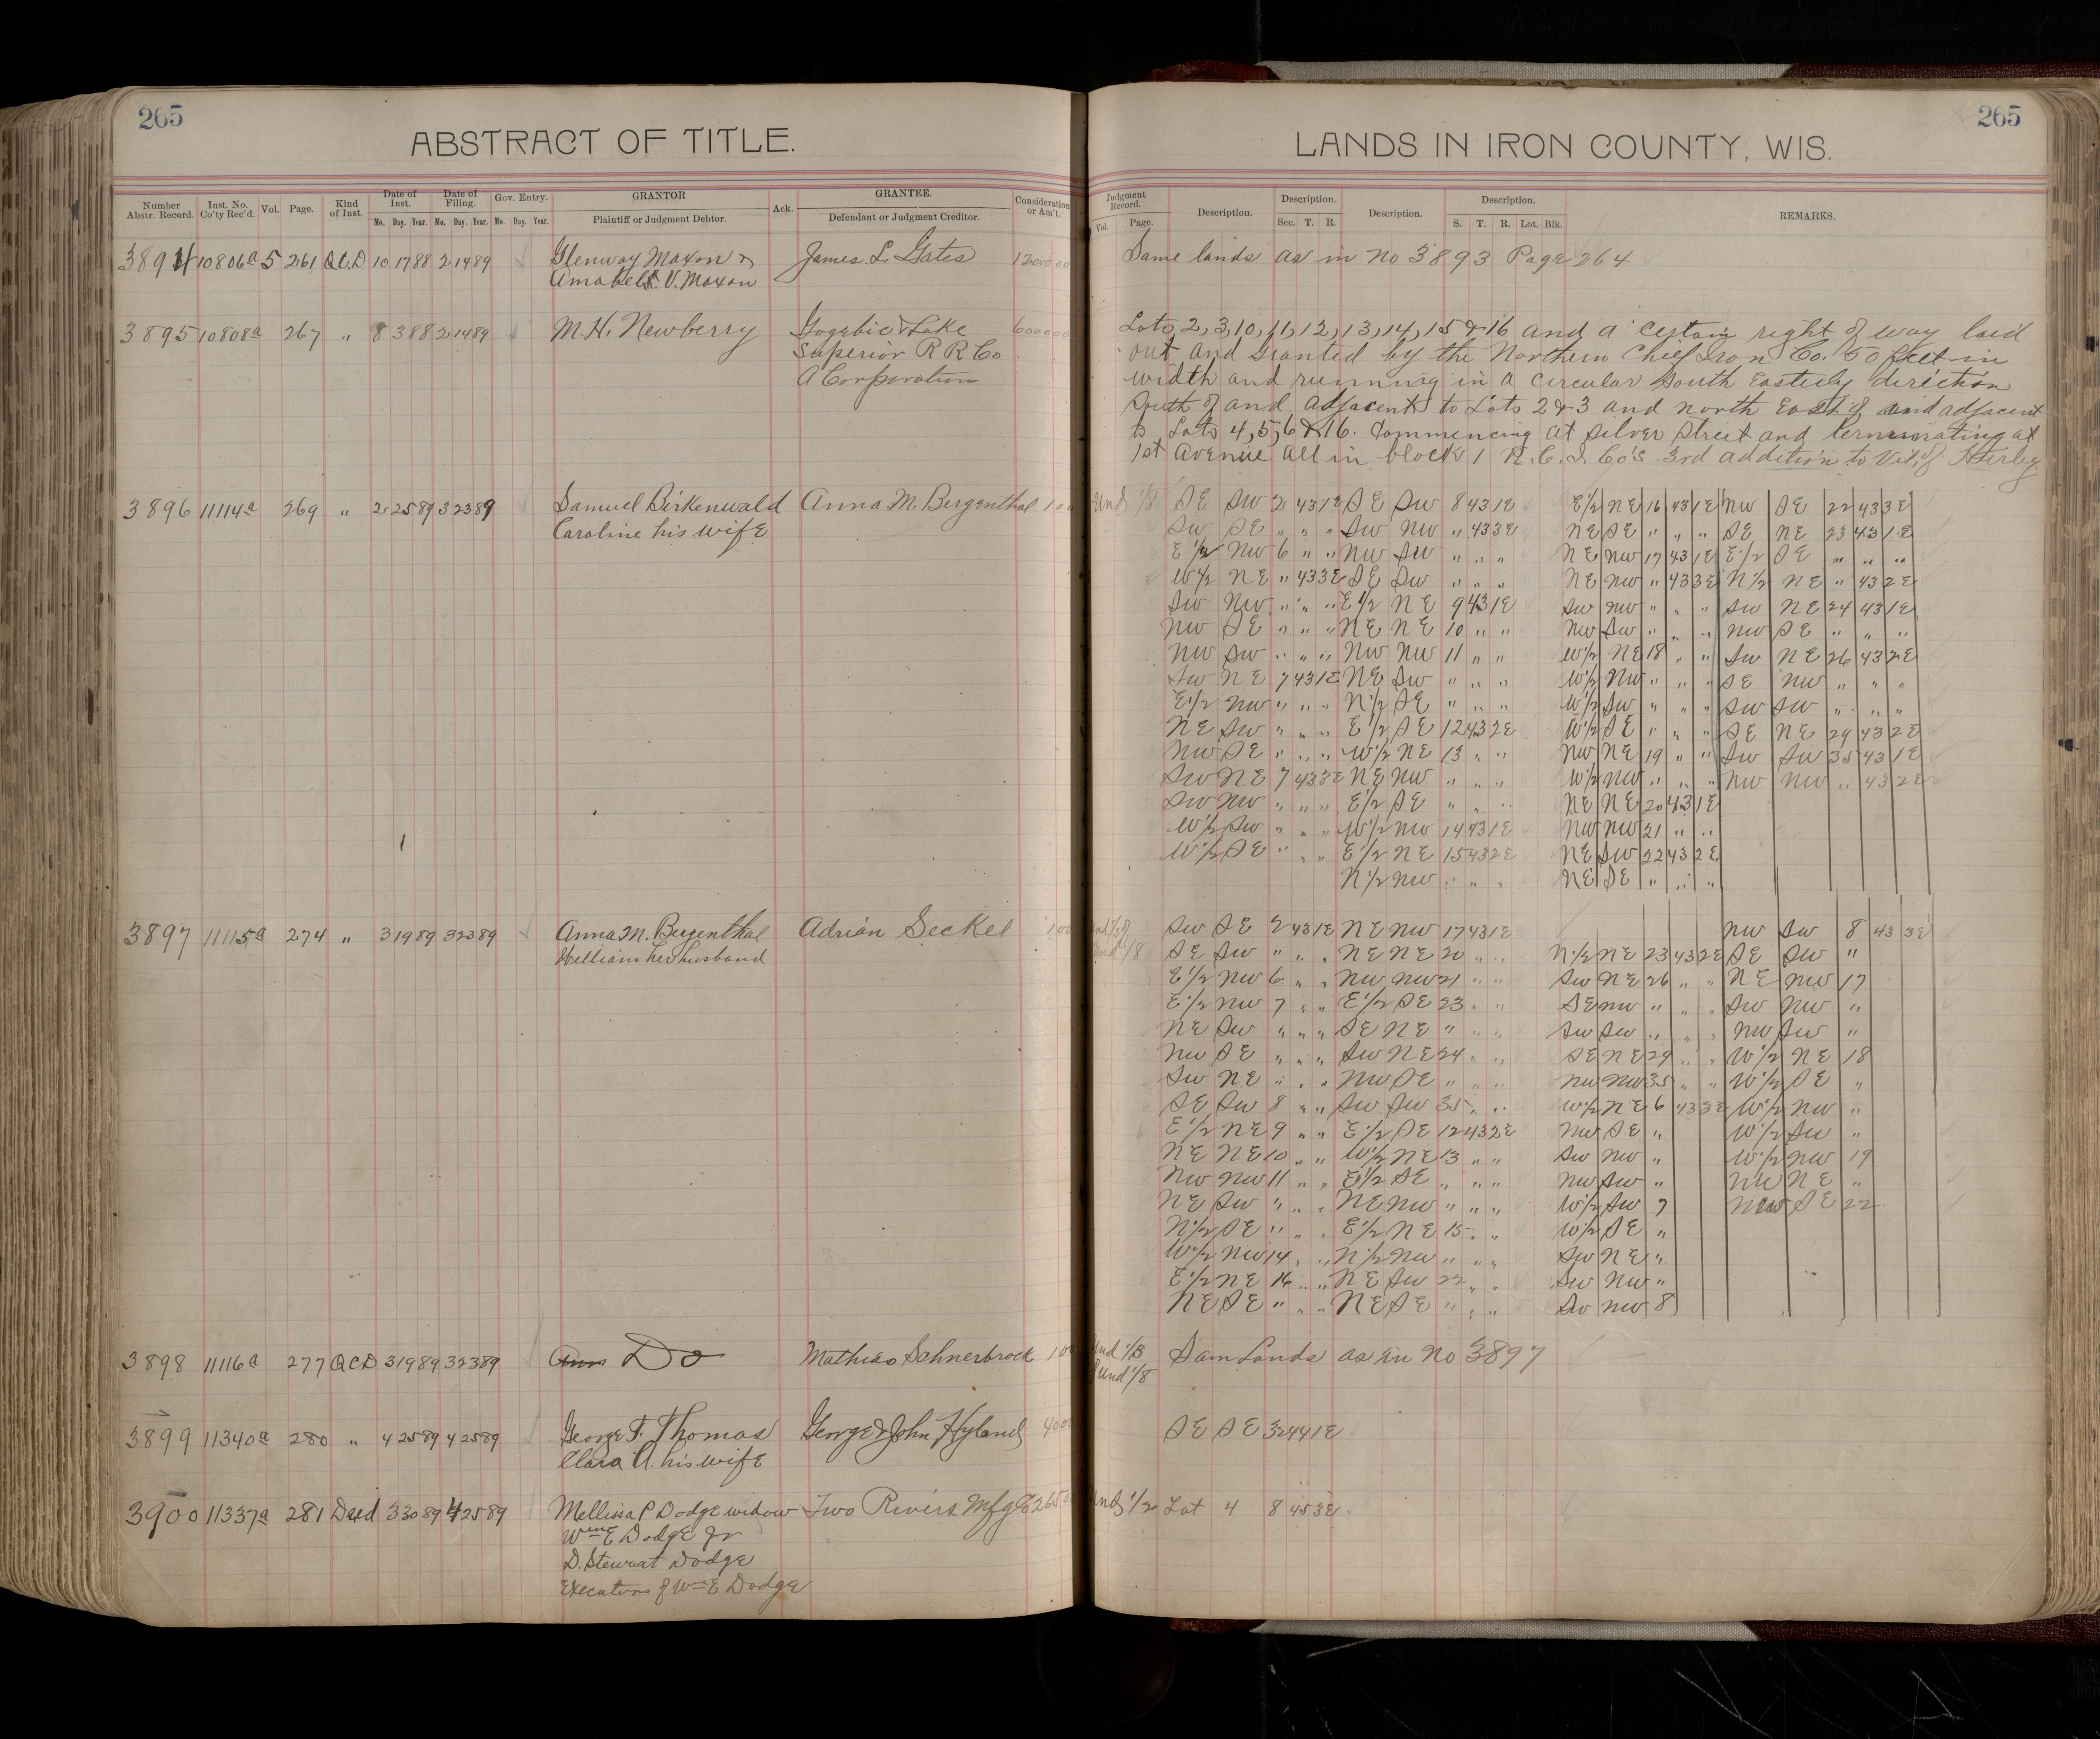 265
265
ABSTRACT OF TITLE.
LANDS IN IRON COUNTY, WIS.
Number Abstr. Record. Inst. No. Co'ty Rec'd. Vol. Page. Kind of Inst. Date of Inst. Mo. Day. Year. Date of Filing. Mo. Day. Year. Gov. Entry. Mo. Day. Year. GRANTOR Plaintiff or Judgment Debtor. Ack. GRANTEE. Defendant or Judgment Creditor. Consideration or Am't.
Judgment Record. Vol. Page. Description. Description. Sec. T. R. Description. Description. S. T. R. Lot. Blk. REMARKS.
3894 10806a 5 261 Q.C.D 10 17 88 2 14 89 Glenway Maxon & James L. Gates 12000.00 Same lands as in No 3893 Page 264
Amabel V. Maxon
3895 10808a 267 " 8 3 88 2 14 89 M.H. Newberry Gogebic & Lake 6000.00 Lots 2, 3, 10, 11, 12, 13, 14, 15 & 16 and a certain right of way laid
Superior R R Co out and granted by the Northern Chief Iron Co. 50 feet in
A Corporation width and running in a circular South Easterly direction
South of and adjacent to Lots 2 & 3 and north East of and adjacent
to Lots 4, 5, 6 & 16. Commencing at Silver Street and terminating at
1st Avenue all in block 1 N.C.I. Co's 3rd addition to Vil. of Hurley
3896 11114a 269 " 2 25 89 3 23 89 Samuel Birkenwald Anna M. Bergenthal 1 00 und 1/8 SE SW 2 43 1E SE SW 8 43 1E E 1/2 NE 16 43 1E NW SE 22 43 3E
Caroline his wife SW SE " " " SW NW " 43 3E NE SE " " " SE NE 23 43 1E
E 1/2 NW 6 " " NW SW " " " NE NW 17 43 1E E 1/2 SE " " "
W 1/2 NE " 43 3E SE SW " " " NE NW " 43 3E N 1/2 NE " 43 2E
SW NW " " " E 1/2 NE 9 43 1E SW NW " " " SW NE 24 43 1E
NW SE " " " NE NE 10 " " NW SW " " " NW SE " " "
NW SW " " " NW NW 11 " " W 1/2 NE 18 " " SW NE 26 43 2E
SW NE 7 43 1E NE SW " " " W 1/2 NW " " " SE NW " " "
E 1/2 NW " " " N 1/2 SE " " " W 1/2 SW " " " SW SW " " "
NE SW " " " E 1/2 SE 12 43 2E W 1/2 SE " " " SE NE 29 43 2E
NW SE " " " W 1/2 NE 13 " " NW NE 19 " " SW SW 35 43 1E
SW NE 7 43 3E NE NW " " " W 1/2 NW " " " NW NW " 43 2E
SW NW " " " E 1/2 SE " " " NE NE 20 43 1E
W 1/2 SW " " " W 1/2 NW 14 43 1E NW NW 21 " "
W 1/2 SE " " " E 1/2 NE 15 43 2E NE SW 22 43 2E
N 1/2 NW " " " NE SE " " "
3897 11115a 274 " 3 19 89 3 23 89 Anna M. Bergenthal Adrian Seckel 1 00 SW SE 2 43 1E NE NW 17 43 1E NW SW 8 43 3E
William her husband und 1/8 SE SW " " " NE NE 20 " " N 1/2 NE 23 43 2E SE SW "
E 1/2 NW 6 " " NW NW 21 " " SW NE 26 " " NE NW 17
E 1/2 NW 7 " " E 1/2 SE 23 " " SE NW " " " SW NW "
NE SW " " " SE NE " " " SW SW " " " NW SW "
NW SE " " " SW NE 24 " " SE NE 29 " " W 1/2 NE 18
SW NE " " " NW SE " " " NW NW 35 " " W 1/2 SE "
SE SW 8 " " SW SW 35 " " W 1/2 NE 6 43 3E W 1/2 NW "
E 1/2 NE 9 " " E 1/2 SE 12 43 2E NW SE " W 1/2 SW "
NE NE 10 " " W 1/2 NE 13 " " SW NW " W 1/2 NW 19
NW NW 11 " " E 1/2 SE " " " NW SW " NW NE "
NE SW " " " NE NW " " " W 1/2 SW 7 NW SE 22
N 1/2 SE " " " E 1/2 NE 15 " " W 1/2 SE "
W 1/2 NW 14 " " N 1/2 NW " " " SW NE "
E 1/2 NE 16 " " NE SW 22 " " SW NW "
NE SE " " " NE SE " " " SW NW 8
3898 11116a 277 QCD 3 19 89 3 23 89 Do Mathias Schnerbrock 1 00 Sam Lands as in No 3897
und 1/8
3899 11340a 280 " 4 25 89 4 25 89 George F. Thomas George & John Hyland 400 SE SE 32 44 1E
Clara A. his wife
3900 11337a 281 Deed 3 30 89 4 25 89 Mellissa P Dodge widow Two Rivers Mfg Co und 1/2 Lot 4 8 45 3E
Wm E Dodge Jr
D. Stewart Dodge
Executors of Wm E Dodge